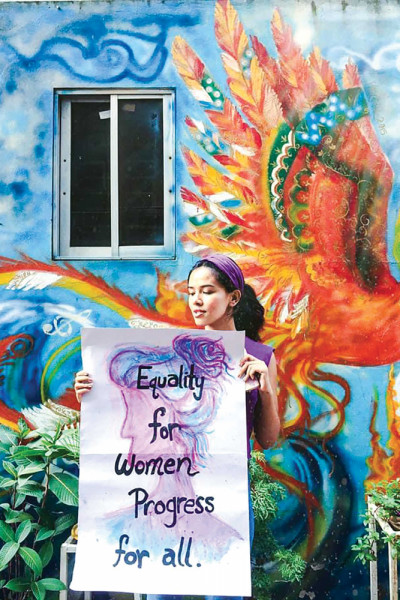 Equality
for
Women
Progress
for all.